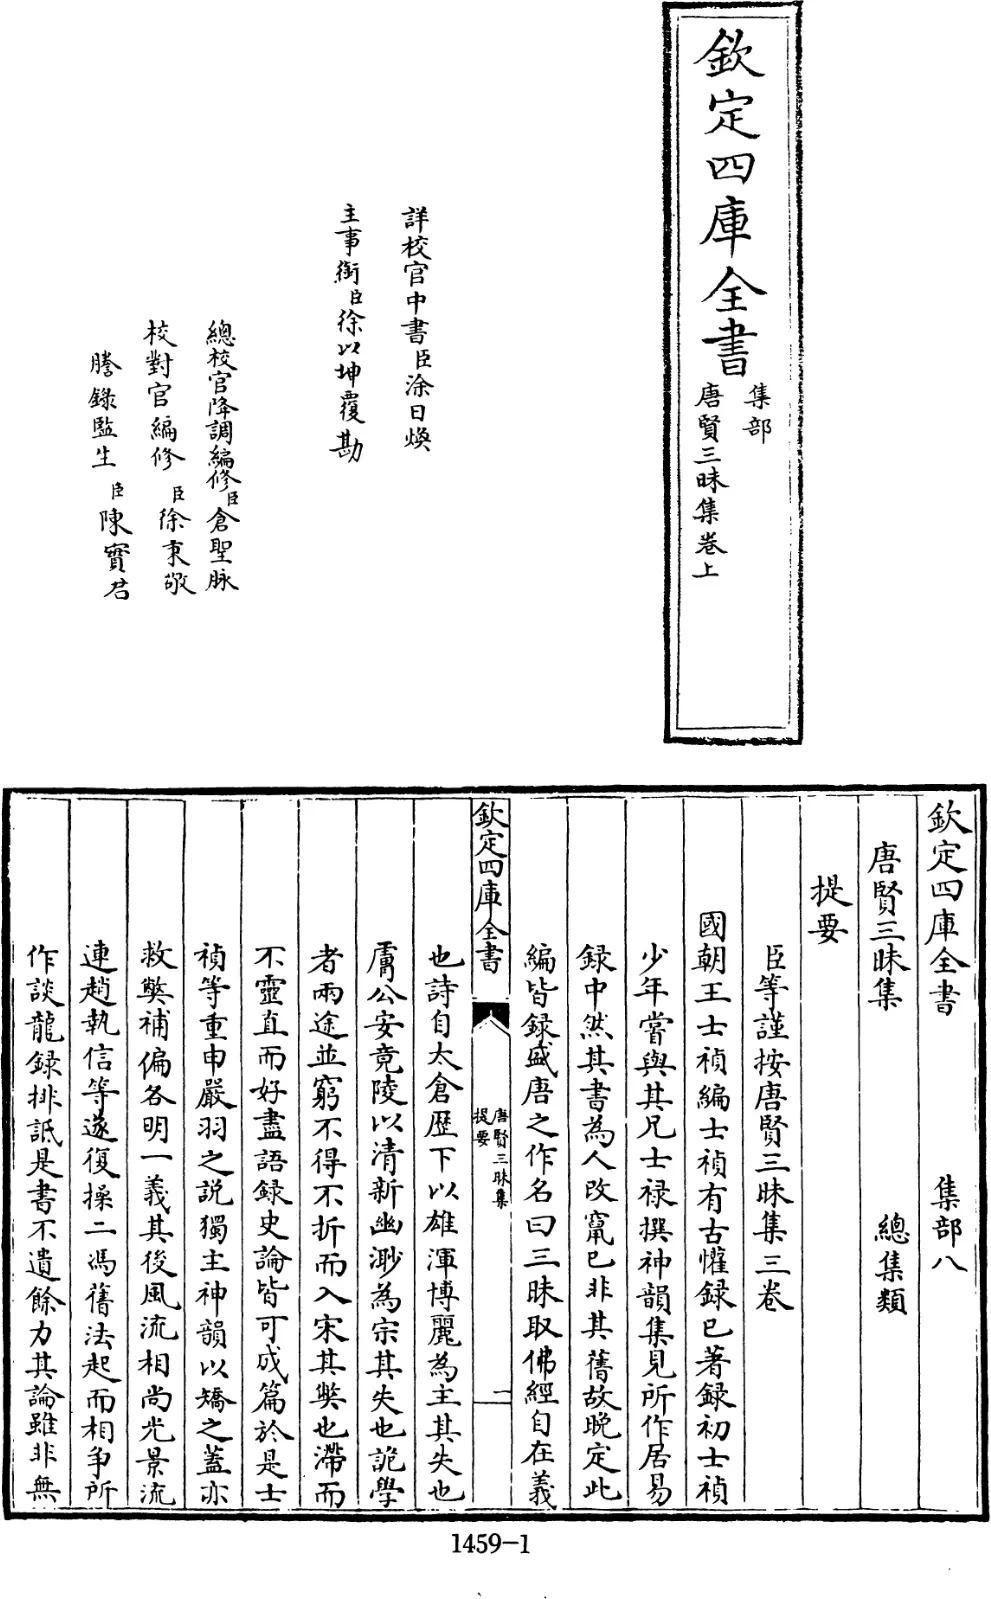 欽定四庫全書
集部
唐賢三昧集卷上
詳校官中書臣涂日煥
主事銜臣徐以坤覆勘
總校官降調編修臣倉聖脉
校對官編修臣徐秉敬
謄錄監生臣陳實君
欽定四庫全書 集部八
唐賢三昧集 總集類
提要
臣等謹按唐賢三昧集三卷
國朝王士禎編士禎有古懽録已著録初士禎
少年嘗與其兄士禄撰神韻集見所作居易
録中然其書為人改竄已非其舊故晚定此
編皆録盛唐之作名曰三昧取佛經自在義
欽定四庫全書
唐賢三昧集
提要
一
也詩自太倉歷下以雄渾博麗為主其失也
膚公安竟陵以清新幽渺為宗其失也詭學
者兩途並窮不得不折而入宋其弊也滯而
不靈直而好盡語録史論皆可成篇於是士
禎等重申嚴羽之説獨主神韻以矯之蓋亦
救弊補偏各明一義其後風流相尚光景流
連趙執信等遂復操二馮舊法起而相爭所
作談龍録排詆是書不遺餘力其論雖非無
1459-1